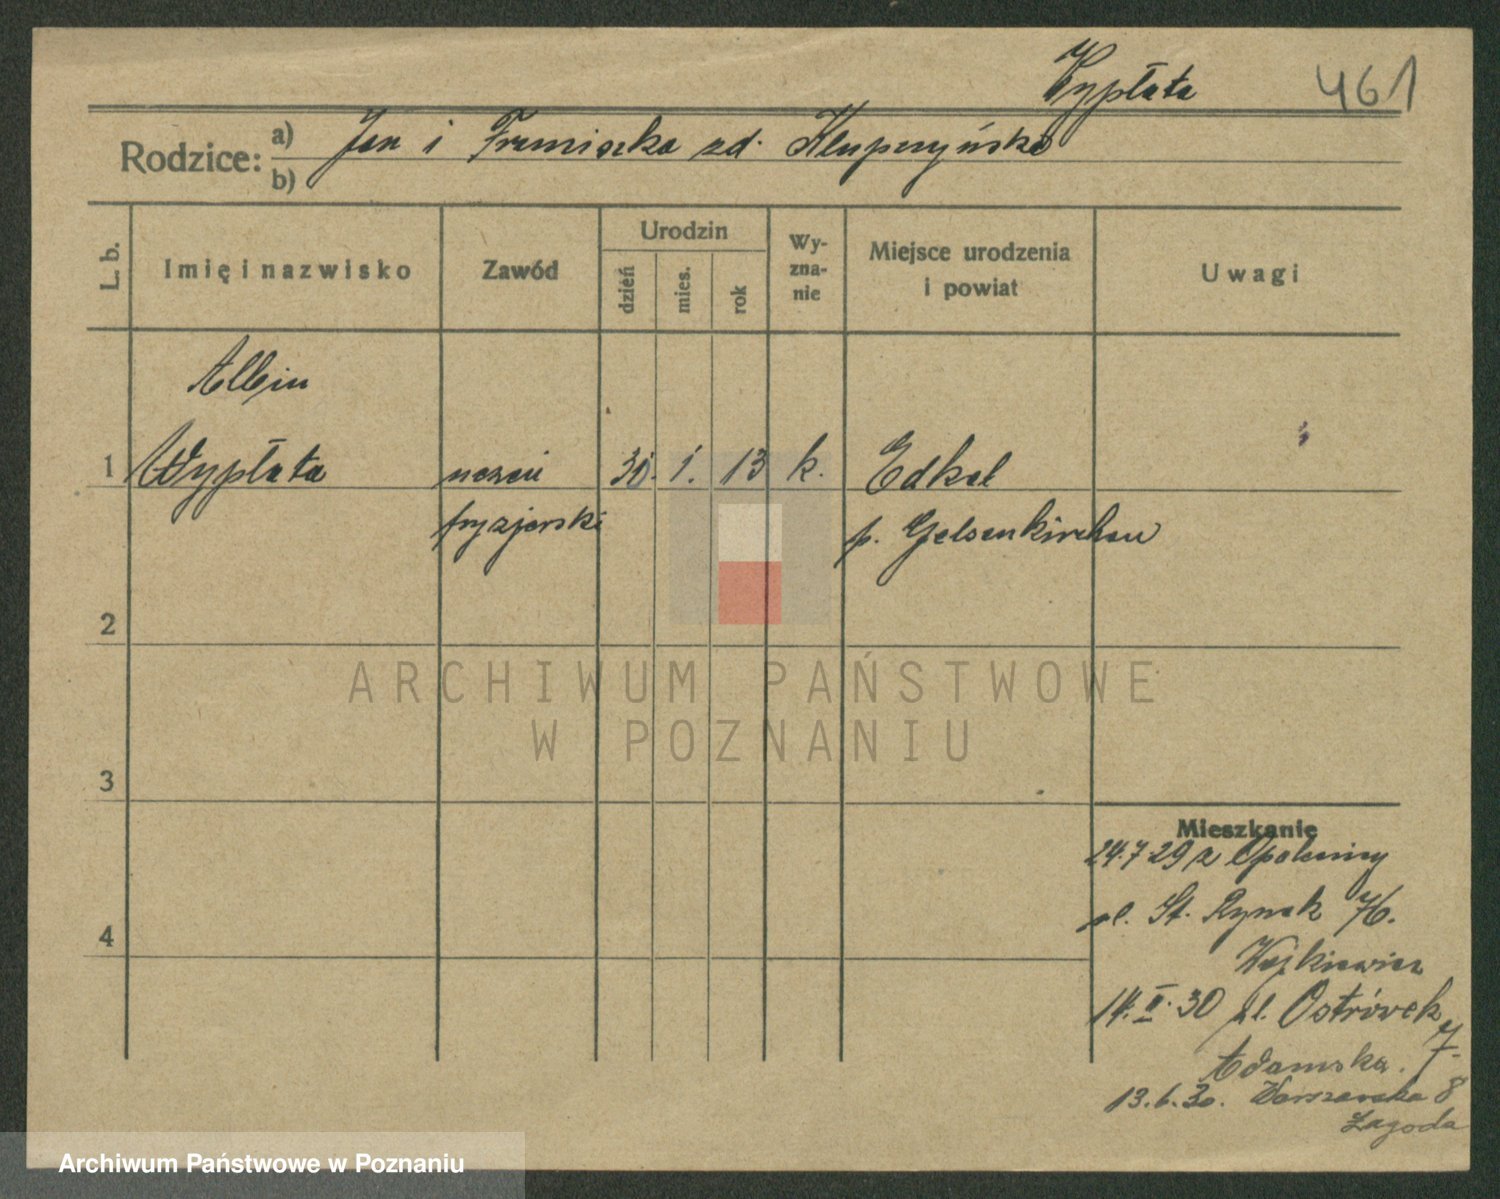 Wypłata 461
Rodzice: a) Jan i Franciszka zd. Klupczyńska
b)
L. b. Imię i nazwisko Zawód Urodzin dzień mies. rok Wyznanie Miejsce urodzenia i powiat Uwagi
Albin
1 Wypłata uczeń 30. 1. 13 k. Edkel
fryzjerski p. Gelsenkirchen
2
ARCHIWUM PAŃSTWOWE
W POZNANIU
3
Mieszkanie
24.7.29 z Opalenicy
ul. St. Rynek 76.
4
Wojkiewicz
14.II.30 ul. Ostrówek 7.
Adamska.
13.6.30. Warszawska 8
Łagoda
Archiwum Państwowe w Poznaniu